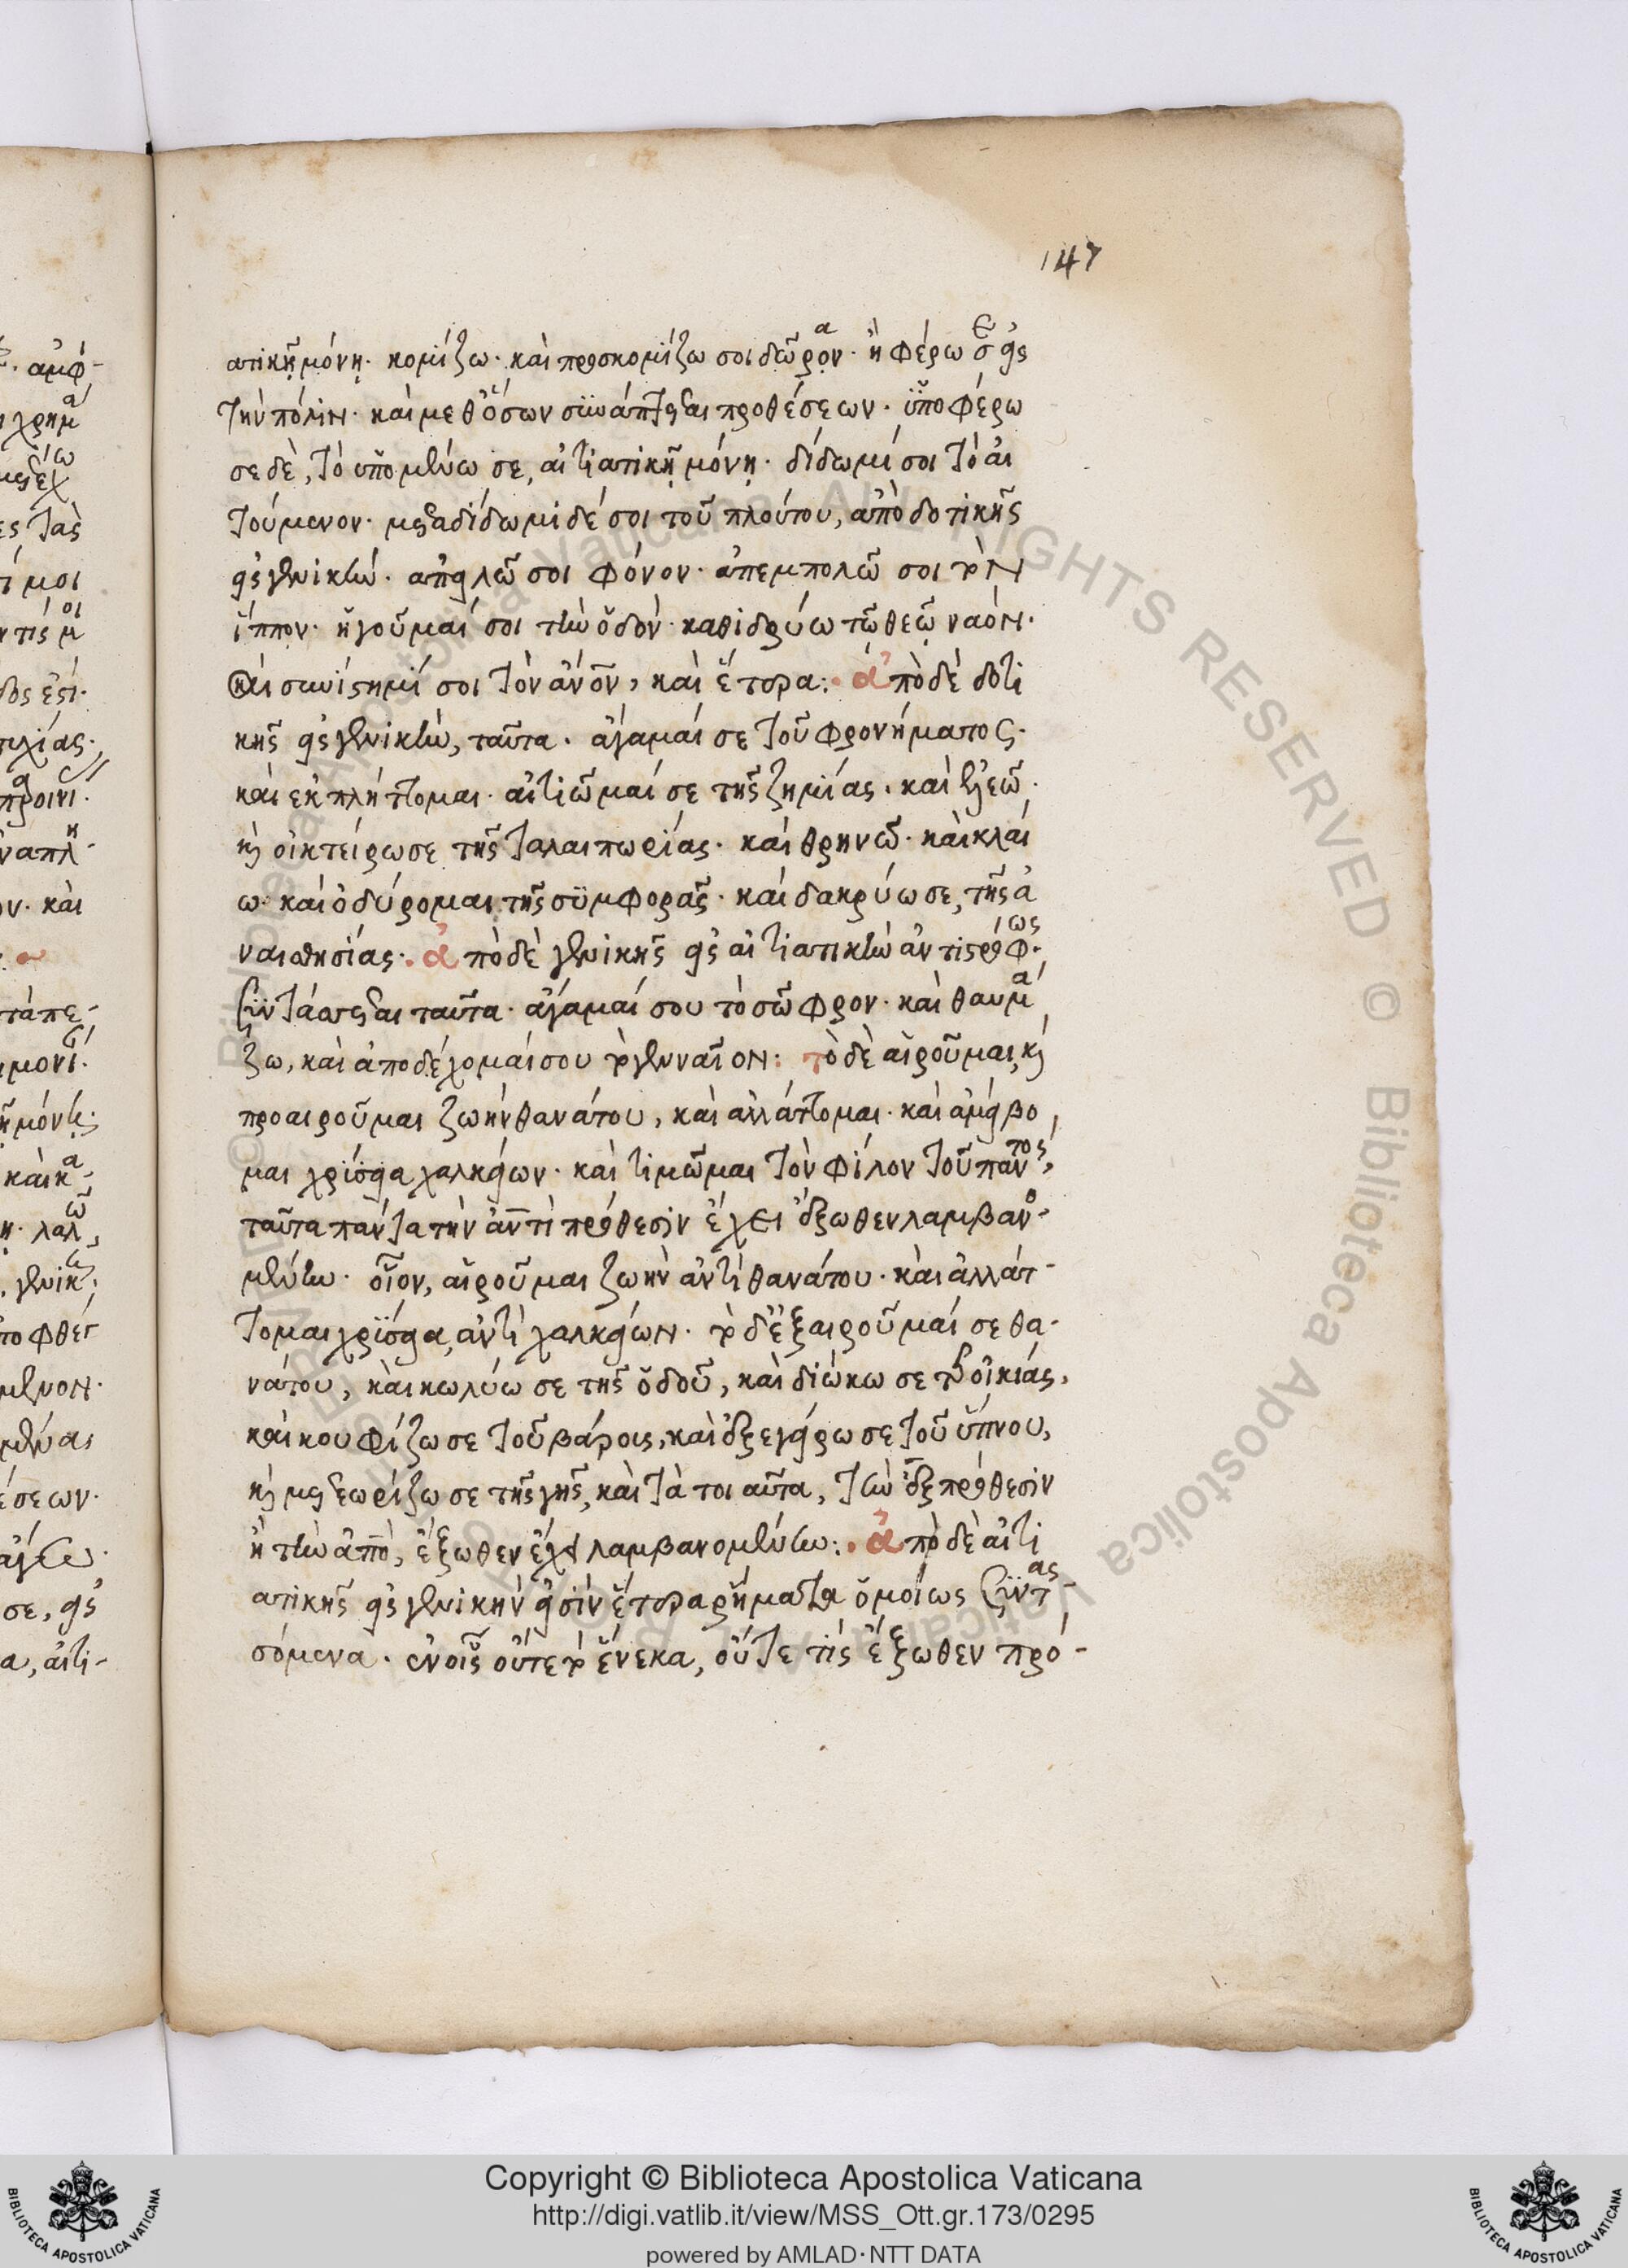 147
ατικῇ μόνῃ· κομίζω· καὶ προσκομίζω σοι δῶρον· ἢ φέρω σε εἰς
τὴν πόλιν· καὶ μεθ' ὅσων συνάπτεσθαι προθέσεων· ὑποφέρω
σε δὲ, τὸ ὑπομένω σε, αἰτιατικῇ μόνῃ· δίδωμί σοι τὸ αἰ
τούμενον· μεταδίδωμι δέ σοι τοῦ πλούτου, ἀπὸ δοτικῆς
εἰς γενικήν· ἀπειλῶ σοι φόνον· ἀπεμπολῶ σοι τὸν
ἵππον· ἡγοῦμαί σοι τὴν ὁδόν· καθιδρύω τῷ θεῷ ναόν·
καὶ συνίστημί σοι τὸν ἄνον, καὶ ἕτερα: ἀπὸ δὲ δοτι
κῆς εἰς γενικὴν, ταῦτα· ἄγαμαί σε τοῦ φρονήματος·
καὶ ἐκπλήττομαι· αἰτιῶμαί σε τῆς ζημίας· καὶ ἐλεῶ·
καὶ οἰκτείρω σε τῆς ταλαιπωρίας· καὶ θρηνῶ· καὶ κλαί
ω· καὶ ὀδύρομαι τῆς συμφορᾶς· καὶ δακρύω σε, τῆς ἀ
ναισθησίας· ἀπὸ δὲ γενικῆς εἰς αἰτιατικὴν ἀντιστρόφως·
συντάσσεσθαι ταῦτα· ἄγαμαί σου τὸ σῶφρον· καὶ θαυμά
ζω, καὶ ἀποδέχομαί σου τὸ γενναῖον: τὸ δὲ αἱροῦμαι, καὶ
προαιροῦμαι ζωὴν θανάτου, καὶ ἀλλάττομαι· καὶ ἀμείβο
μαι χρύσεια χαλκείων· καὶ τιμῶμαι τὸν φίλον τοῦ παντός,
ταῦτα πάντα τὴν ἀντὶ πρόθεσιν ἔχει ἔξωθεν λαμβανο·
μένην· οἷον, αἱροῦμαι ζωὴν ἀντὶ θανάτου· καὶ ἀλλάτ-
τομαι χρύσεια, ἀντὶ χαλκείων· τὸ δ' ἐξαιροῦμαί σε θα-
νάτου, καὶ κωλύω σε τῆς ὁδοῦ, καὶ διώκω σε τῆς οἰκίας,
καὶ κουφίζω σε τοῦ βάρους, καὶ ἐξεγείρω σε τοῦ ὕπνου,
καὶ μετεωρίζω σε τῆς γῆς, καὶ τὰ τοιαῦτα, τὴν ἐξ πρόθεσιν
ἢ τὴν ἀπὸ, ἔξωθεν ἔχει λαμβανομένην: ἀπὸ δὲ αἰτι
ατικῆς εἰς γενικὴν εἰσὶν ἕτερα ῥήματα ὁμοίως συντασ-
σόμενα· ἐν οἷς οὔτε τὸ ἕνεκα, οὔτε τίς ἔξωθεν πρό-
Copyright © Biblioteca Apostolica Vaticana
http://digi.vatlib.it/view/MSS_Ott.gr.173/0295
powered by AMLAD·NTT DATA
BIBLIOTECA APOSTOLICA VATICANA
BIBLIOTECA APOSTOLICA VATICANA